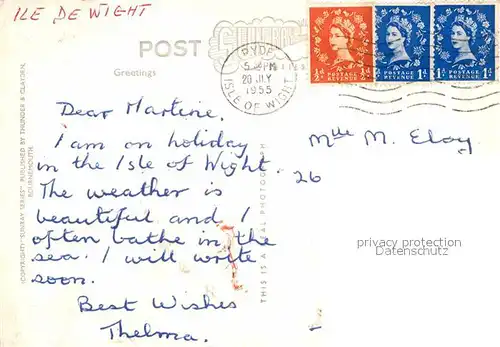 ILE DE WIGHT
POST
Greetings
RYDE
5 PM
20 JLY
1955
ISLE OF WIGHT
½D POSTAGE REVENUE ½D
1D POSTAGE REVENUE 1D
1D POSTAGE REVENUE 1D
Dear Martine,
I am on holiday
in the Isle of Wight.
The weather is
beautiful and I
often bathe in the
sea. I will write
soon.
Best Wishes
Thelma.
Mlle M. Eloy
26
privacy protection
Datenschutz
(COPYRIGHT) "SUNRAY SERIES" PUBLISHED BY THUNDER & CLAYDEN,
BOURNEMOUTH
THIS IS A REAL PHOTOGRAPH